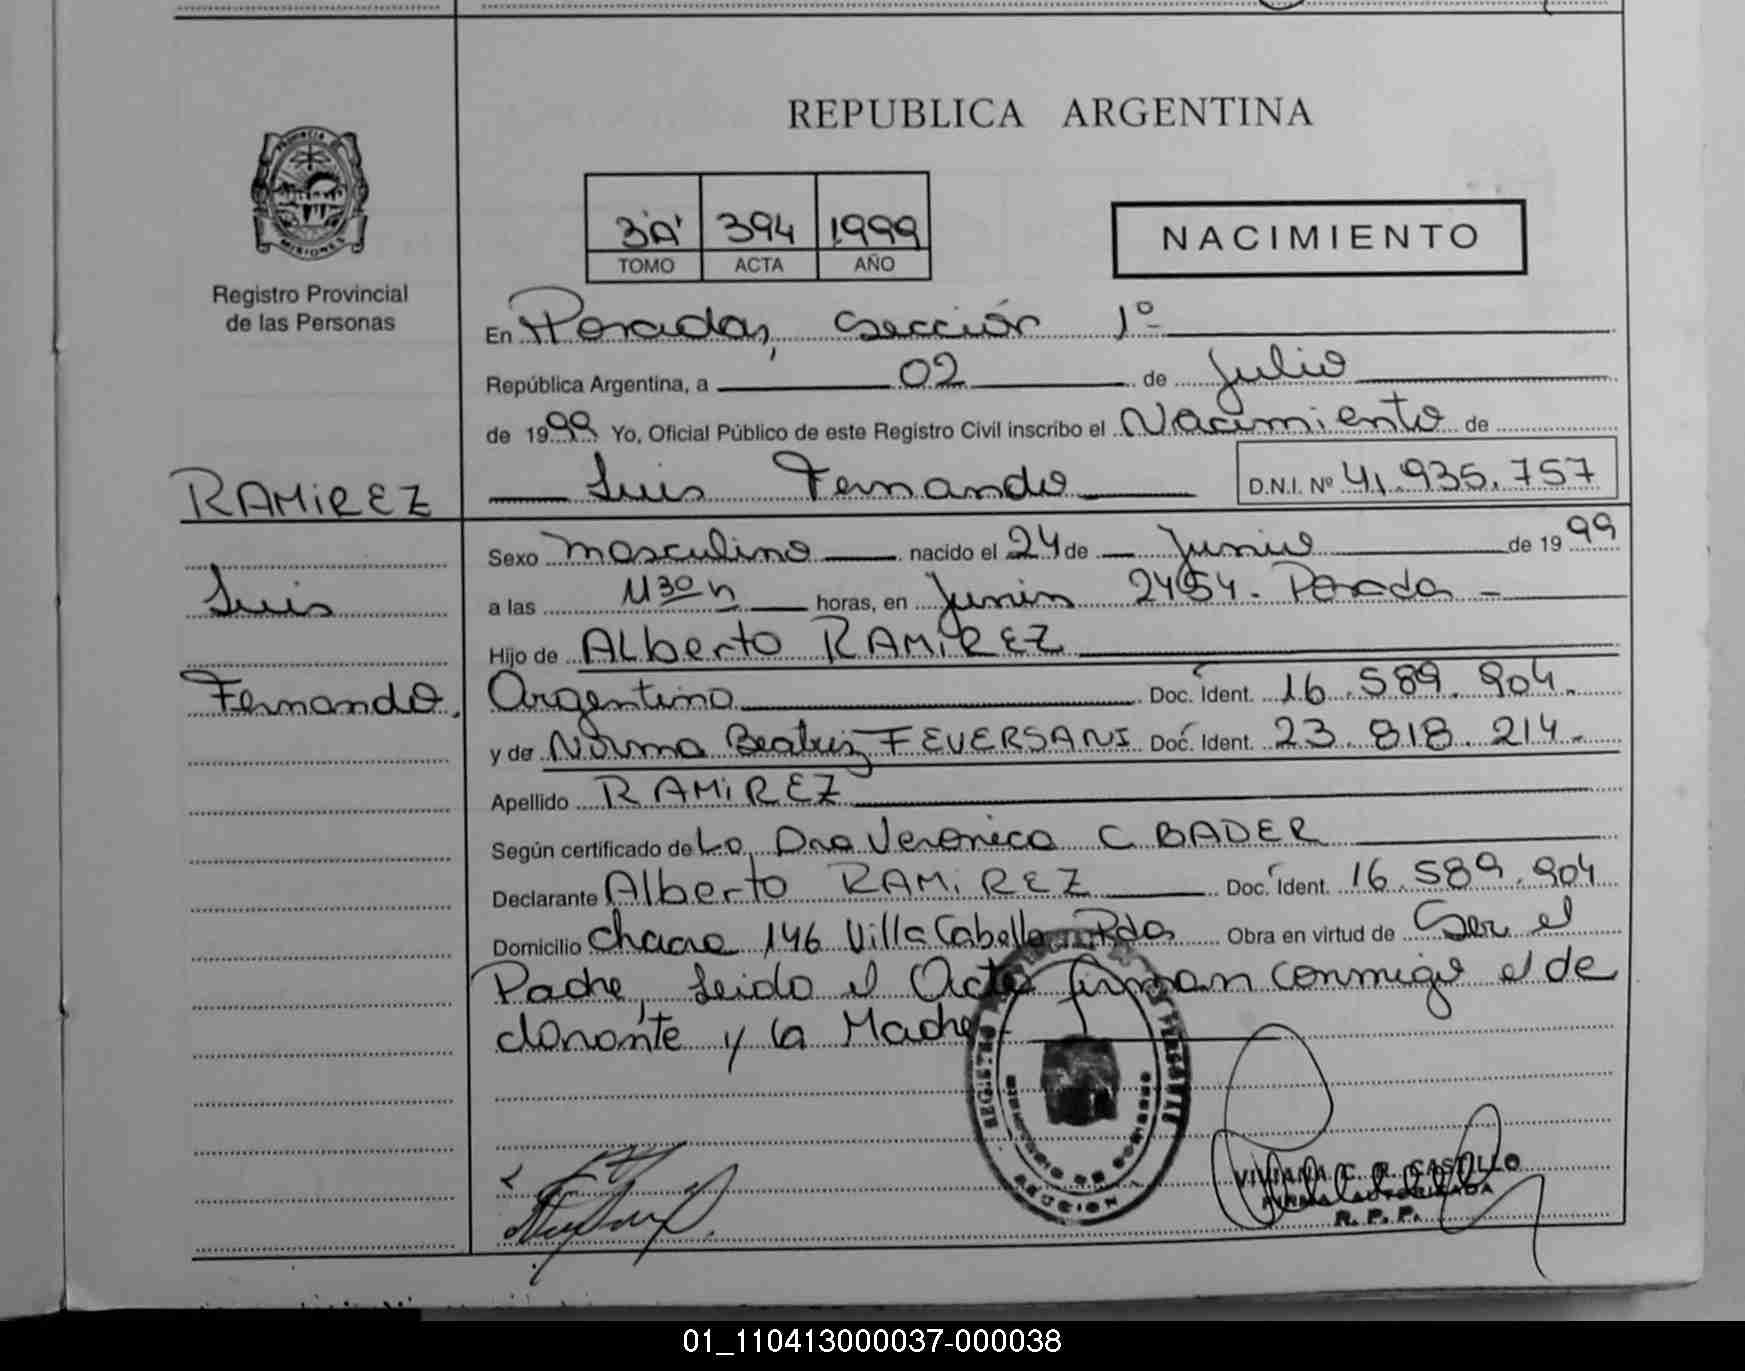 REPUBLICA ARGENTINA
PROVINCIA DE
MISIONES
3"A" 394 1999
TOMO ACTA AÑO
NACIMIENTO
Registro Provincial
de las Personas
En Posadas, Sección 1º
República Argentina, a 02 de Julio
de 1999 Yo, Oficial Público de este Registro Civil inscribo el Nacimiento de
RAMIREZ
Luis Fernando D.N.I. Nº 41.935.757
Sexo masculino nacido el 24 de Junio de 1999
Luis
a las 1130 h horas, en Junin 2454. Posadas -
Hijo de Alberto RAMIREZ
Fernando.
Argentino Doc. Ident. 16.589.904.
y de Norma Beatriz FEVERSANI Doc. Ident. 23.818.214.
Apellido RAMIREZ
Según certificado de La Dra Veronica C. BADER
Declarante Alberto RAMIREZ Doc. Ident. 16.589.904
Domicilio chacra 146 Villa Cabello Pdas Obra en virtud de Ser el
Padre, Leido el Acta firman conmigo el de
clarante y la Madre
REGISTRO PROVINCIAL DE LAS PERSONAS
SECCION 1
VIVIANA C. R. CASTILLO
FIRMA AUTORIZADA
R. P. P.
01_110413000037-000038